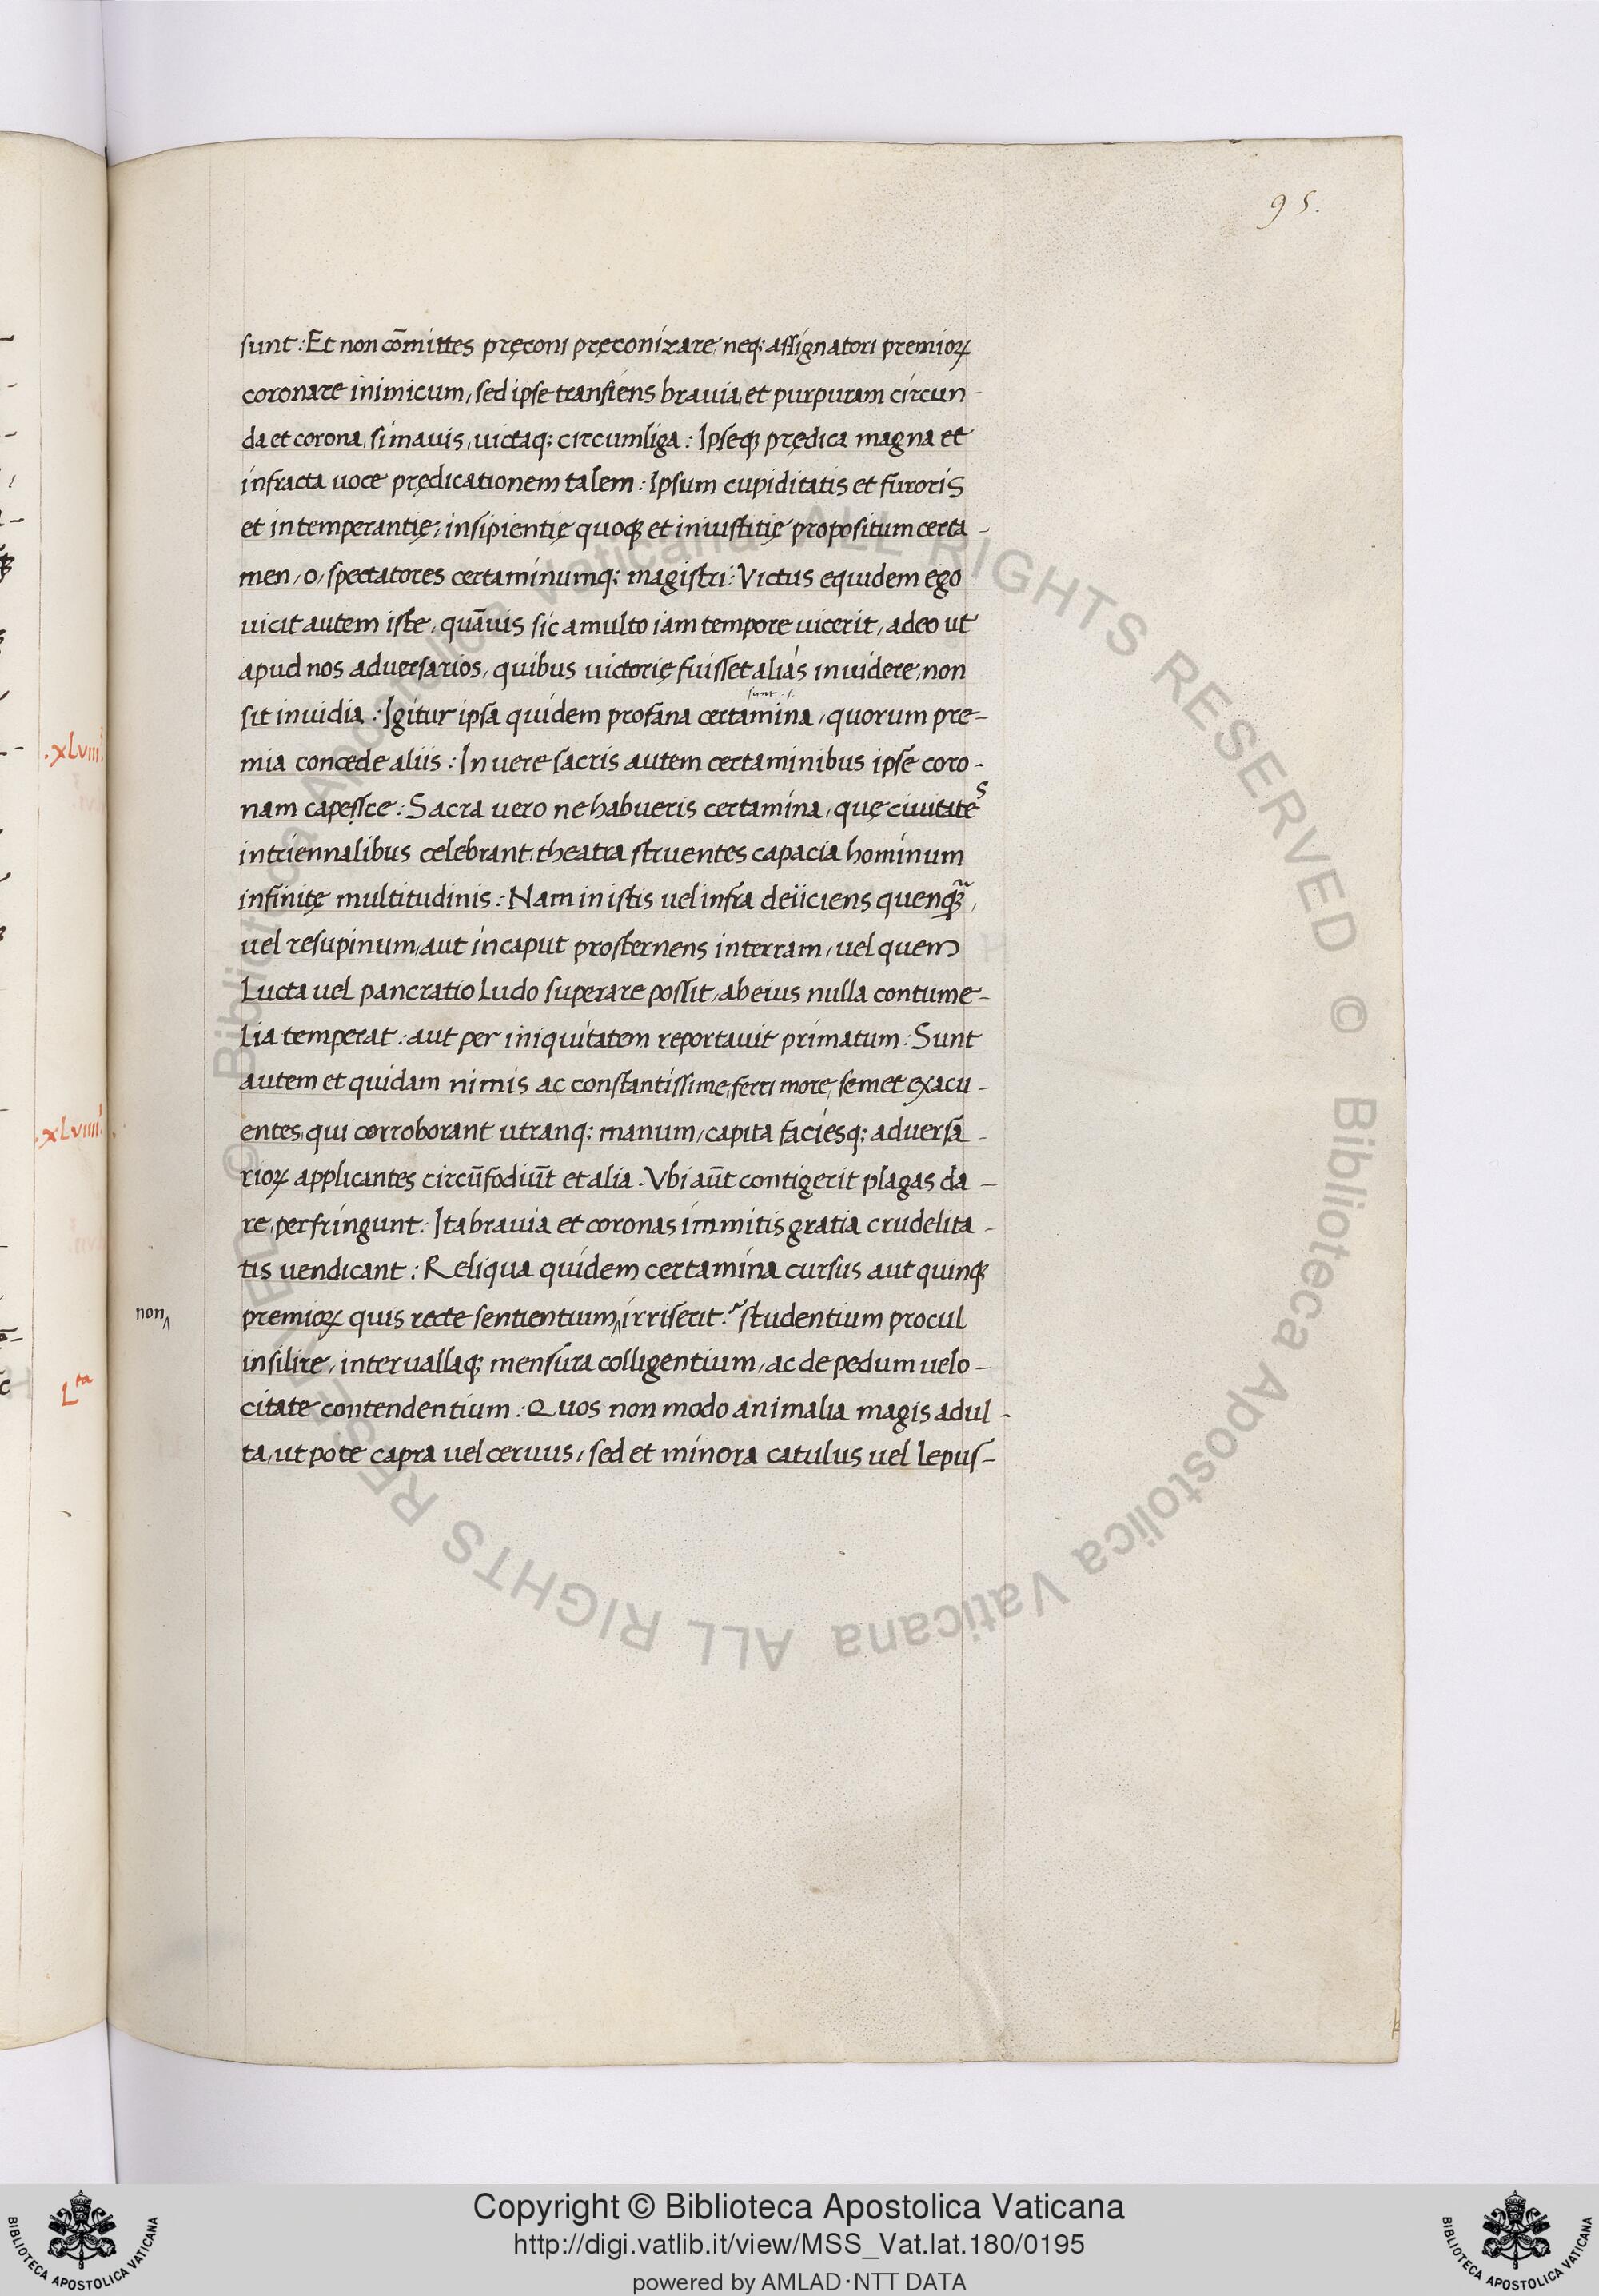 95.
sunt : Et non cōmittes pręconi pręconizare, neq; assignatori premioꝝ
coronare inimicum, sed ipse transiens bravia, et purpuram circun-
da et corona, si mauis, uictaq; circumliga : Ipseq; prędica magna et
infracta uoce prędicationem talem : Ipsum cupiditatis et furoris
et intemperantię, insipientię quoq; et iniustitię propositum certa-
men, o, spectatores certaminumq; magistri : Victus equidem ego
uicit autem iste, quāuis sic a multo iam tempore uicerit, adeo ut
apud nos adversarios, quibus uictorię fuisset aliás inuidere, non
sunt .s.
sit inuidia : Igitur ipsa quidem profana certamina, quorum pre-
.xLviii.
mia concede aliis : In uere sacris autem certaminibus ipse coro-
nam capessce : Sacra uero ne habueris certamina, quę ciuitates
in triennalibus celebrant, theatra struentes capacia hominum
infinitę multitudinis : Nam in istis uel infra deiiciens quenq̃,
uel resupinum, aut in caput prosternens in terram, uel quem
Lucta uel pancratio Ludo superare possit, ab eius nulla contume-
Lia temperat : aut per iniquitatem reportauit primatum : Sunt
autem et quidam nimis ac constantissime, ferri more, semet exacu-
.xLviiii.
entes, qui corroborant utranq; manum, capita faciesq; aduersa-
rioꝝ applicantes circūfodiūt et alia . Vbi aūt contigerit plagas da-
re, perfringunt : Ita bravia et coronas immitis gratia crudelita-
tis uendicant : Reliqua quidem certamina cursus aut quinq;
non
premioꝝ quis recte sentientium irriserit ? studentium procul
insilire, interuallaq; mensura colligentium, ac de pedum uelo-
Lta
citate contendentium : Quos non modo animalia magis adul-
ta, ut pote capra uel ceruus, sed et minora catulus uel lepus-
© Biblioteca Apostolica Vaticana ALL RIGHTS RESERVED © Biblioteca Apostolica Vaticana ALL RIGHTS RESERVED
Copyright © Biblioteca Apostolica Vaticana
http://digi.vatlib.it/view/MSS_Vat.lat.180/0195
powered by AMLAD·NTT DATA
BIBLIOTECA APOSTOLICA VATICANA
BIBLIOTECA APOSTOLICA VATICANA